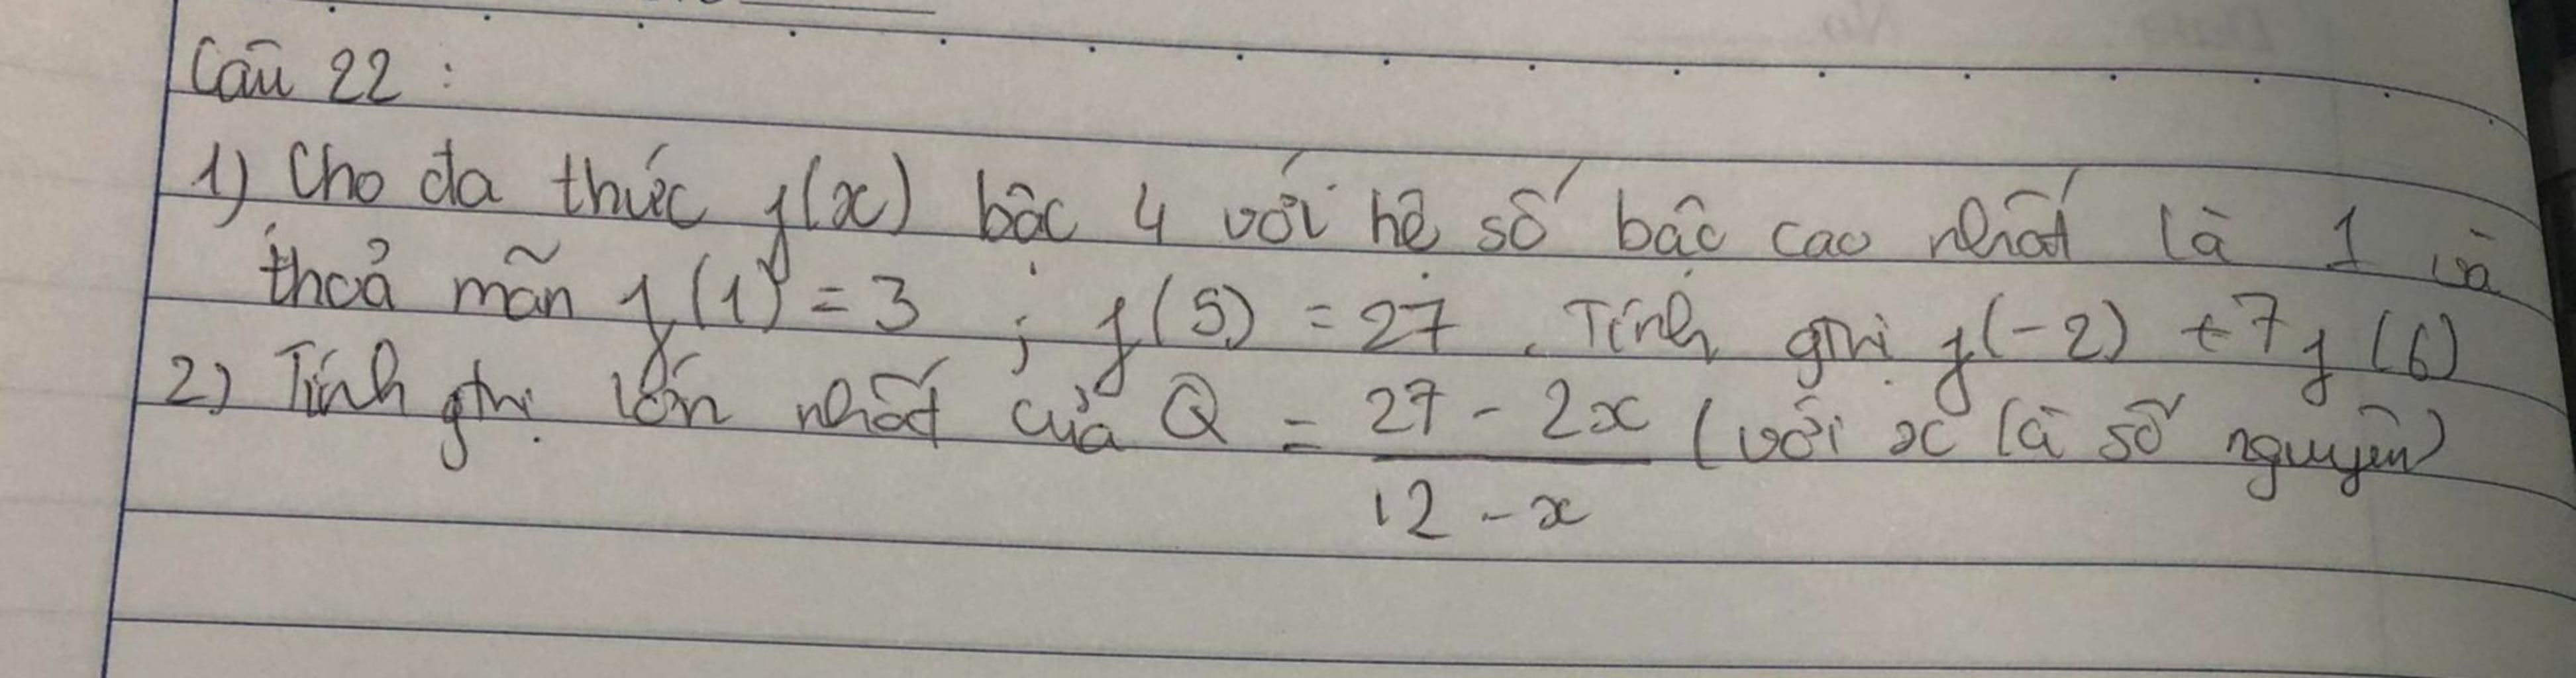 Câu 22 :
1) Cho đa thức f(x) bậc 4 với hệ số bậc cao nhất là 1 và
thoả mãn f(1) = 3 ; f(5) = 27 . Tính gtri f(-2) + 7f(6)
2) Tính gtrị lớn nhất của Q = \frac{27 - 2x}{12 - x} (với x là số nguyên)